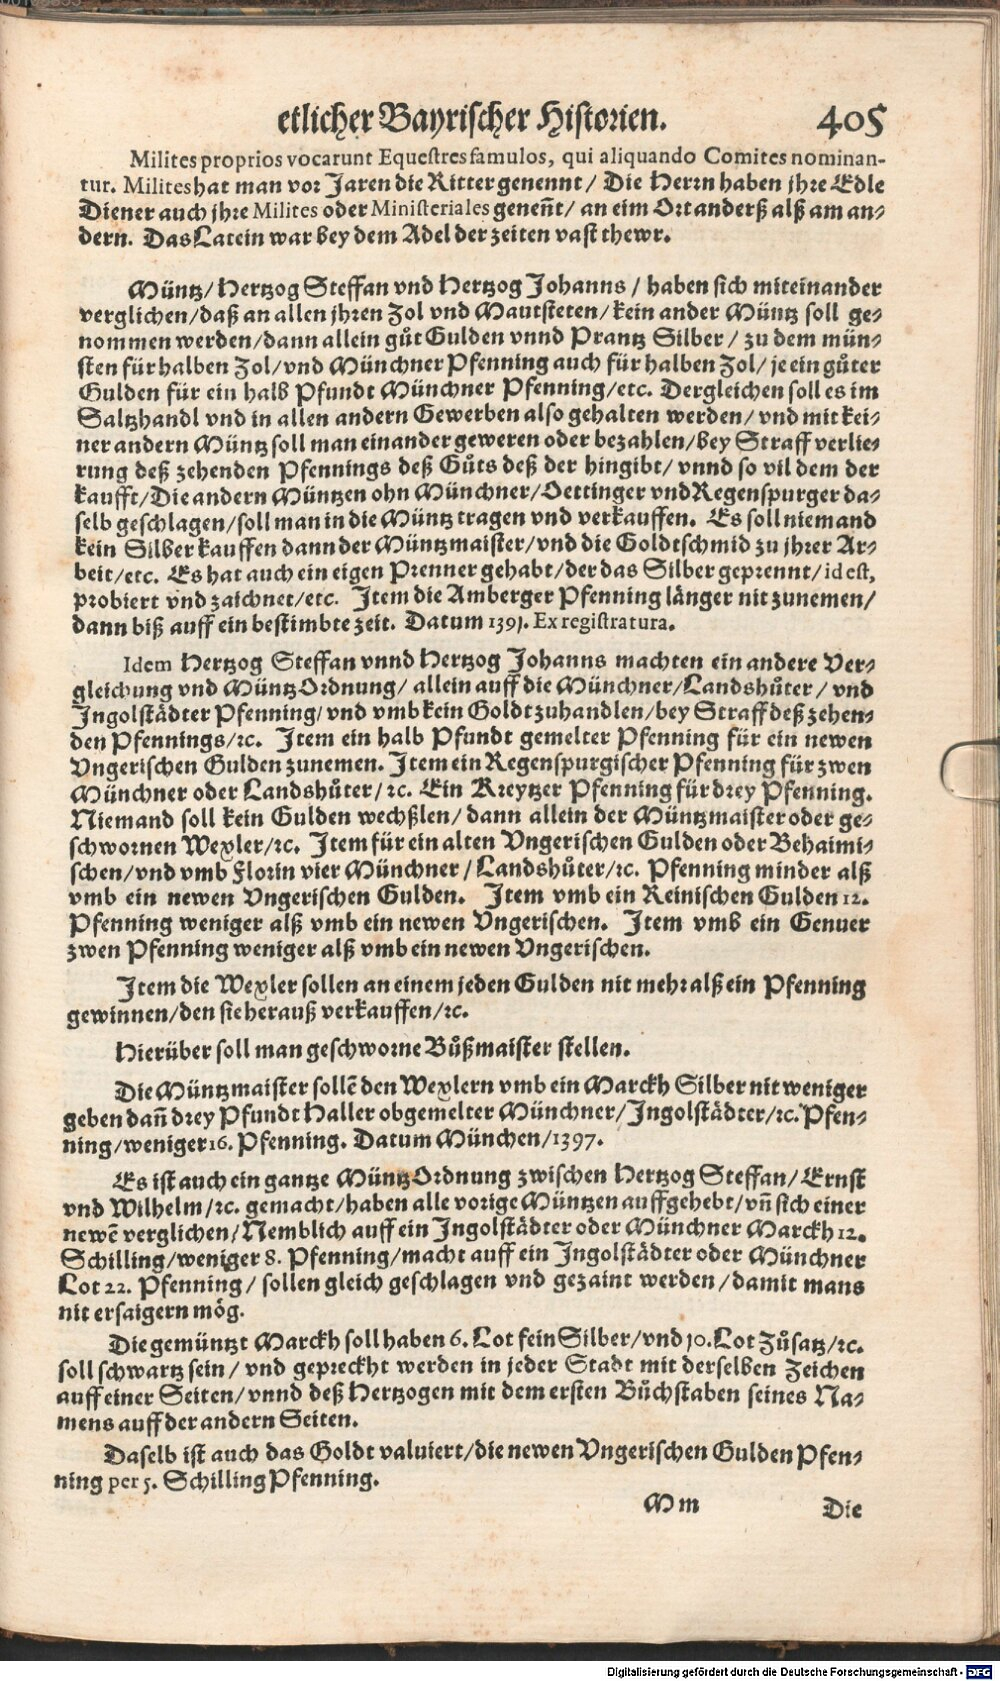 etlicher Bayrischer Historien. 405
Milites proprios vocarunt Equestres famulos, qui aliquando Comites nominan-
tur. Milites hat man vor Jaren die Ritter genennt / Die Herrn haben jhre Edle
Diener auch jhre Milites oder Ministeriales genen̄t / an eim Ort anderß alß am an-
dern. Das Latein war bey dem Adel der zeiten vast thewr.
Müntz / Hertzog Steffan vnd Hertzog Johanns / haben sich miteinander
verglichen / daß an allen jhren Zol vnd Mautsteten / kein ander Müntz soll ge-
nommen werden / dann allein gůt Gulden vnnd Prantz Silber / zu dem mün-
sten für halben Zol / vnd Münchner Pfenning auch für halben Zol / je ein gůter
Gulden für ein halb Pfundt Münchner Pfenning / etc. Dergleichen soll es im
Saltzhandl vnd in allen andern Gewerben also gehalten werden / vnd mit kei-
ner andern Müntz soll man einander geweren oder bezahlen / bey Straff verlie-
rung deß zehenden Pfennings deß Gůts deß der hingibt / vnnd so vil dem der
kaufft / Die andern Müntzen ohn Münchner / Oettinger vnd Regenspurger da-
selb geschlagen / soll man in die Müntz tragen vnd verkauffen. Es soll niemand
kein Silber kauffen dann der Müntzmaister / vnd die Goldtschmid zu jhrer Ar-
beit / etc. Es hat auch ein eigen Prenner gehabt / der das Silber geprennt / id est,
probiert vnd zaichnet / etc. Item die Amberger Pfenning länger nit zunemen /
dann biß auff ein bestimbte zeit. Datum 1391. Ex registratura.
Idem Hertzog Steffan vnnd Hertzog Johanns machten ein andere Ver-
gleichung vnd Müntz Ordnung / allein auff die Münchner / Landshůter / vnd
Ingolstädter Pfenning / vnd vmb kein Goldt zuhandlen / bey Straff deß zehen-
den Pfennings / ꝛc. Item ein halb Pfundt gemelter Pfenning für ein newen
Vngerischen Gulden zunemen. Item ein Regenspurgischer Pfenning für zwen
Münchner oder Landshůter / ꝛc. Ein Kreytzer Pfenning für drey Pfenning.
Niemand soll kein Gulden wechßlen / dann allein der Müntzmaister oder ge-
schwornen Wexler / ꝛc. Item für ein alten Vngerischen Gulden oder Behaimi-
schen / vnd vmb Florin vier Münchner / Landshůter / ꝛc. Pfenning minder alß
vmb ein newen Vngerischen Gulden. Item vmb ein Reinischen Gulden 12.
Pfenning weniger alß vmb ein newen Vngerischen. Item vmb ein Genuer
zwen Pfenning weniger alß vmb ein newen Vngerischen.
Item die Wexler sollen an einem jeden Gulden nit mehr alß ein Pfenning
gewinnen / den sie herauß verkauffen / ꝛc.
Hierüber soll man geschworne Bůßmaister stellen.
Die Müntzmaister sollē den Wexlern vmb ein Marckh Silber nit weniger
geben dan̄ drey Pfundt Haller obgemelter Münchner / Ingolstädter / ꝛc. Pfen-
ning / weniger 16. Pfenning. Datum München / 1397.
Es ist auch ein gantze Müntz Ordnung zwischen Hertzog Steffan / Ernst
vnd Wilhelm / ꝛc. gemacht / haben alle vorige Müntzen auffgehebt / vn̄ sich einer
newē verglichen / Nemblich auff ein Ingolstädter oder Münchner Marckh 12.
Schilling / weniger 8. Pfenning / macht auff ein Ingolstädter oder Münchner
Lot 22. Pfenning / sollen gleich geschlagen vnd gezaint werden / damit mans
nit ersaigern mög.
Die gemüntzt Marckh soll haben 6. Lot fein Silber / vnd 10. Lot Zůsatz / ꝛc.
soll schwartz sein / vnd gepreckht werden in jeder Stadt mit derselben Zeichen
auff einer Seiten / vnnd deß Hertzogen mit dem ersten Bůchstaben seines Na-
mens auff der andern Seiten.
Daselb ist auch das Goldt valuiert / die newen Vngerischen Gulden Pfen-
ning per 5. Schilling Pfenning.
Mm Die
Digitalisierung gefördert durch die Deutsche Forschungsgemeinschaft - DFG